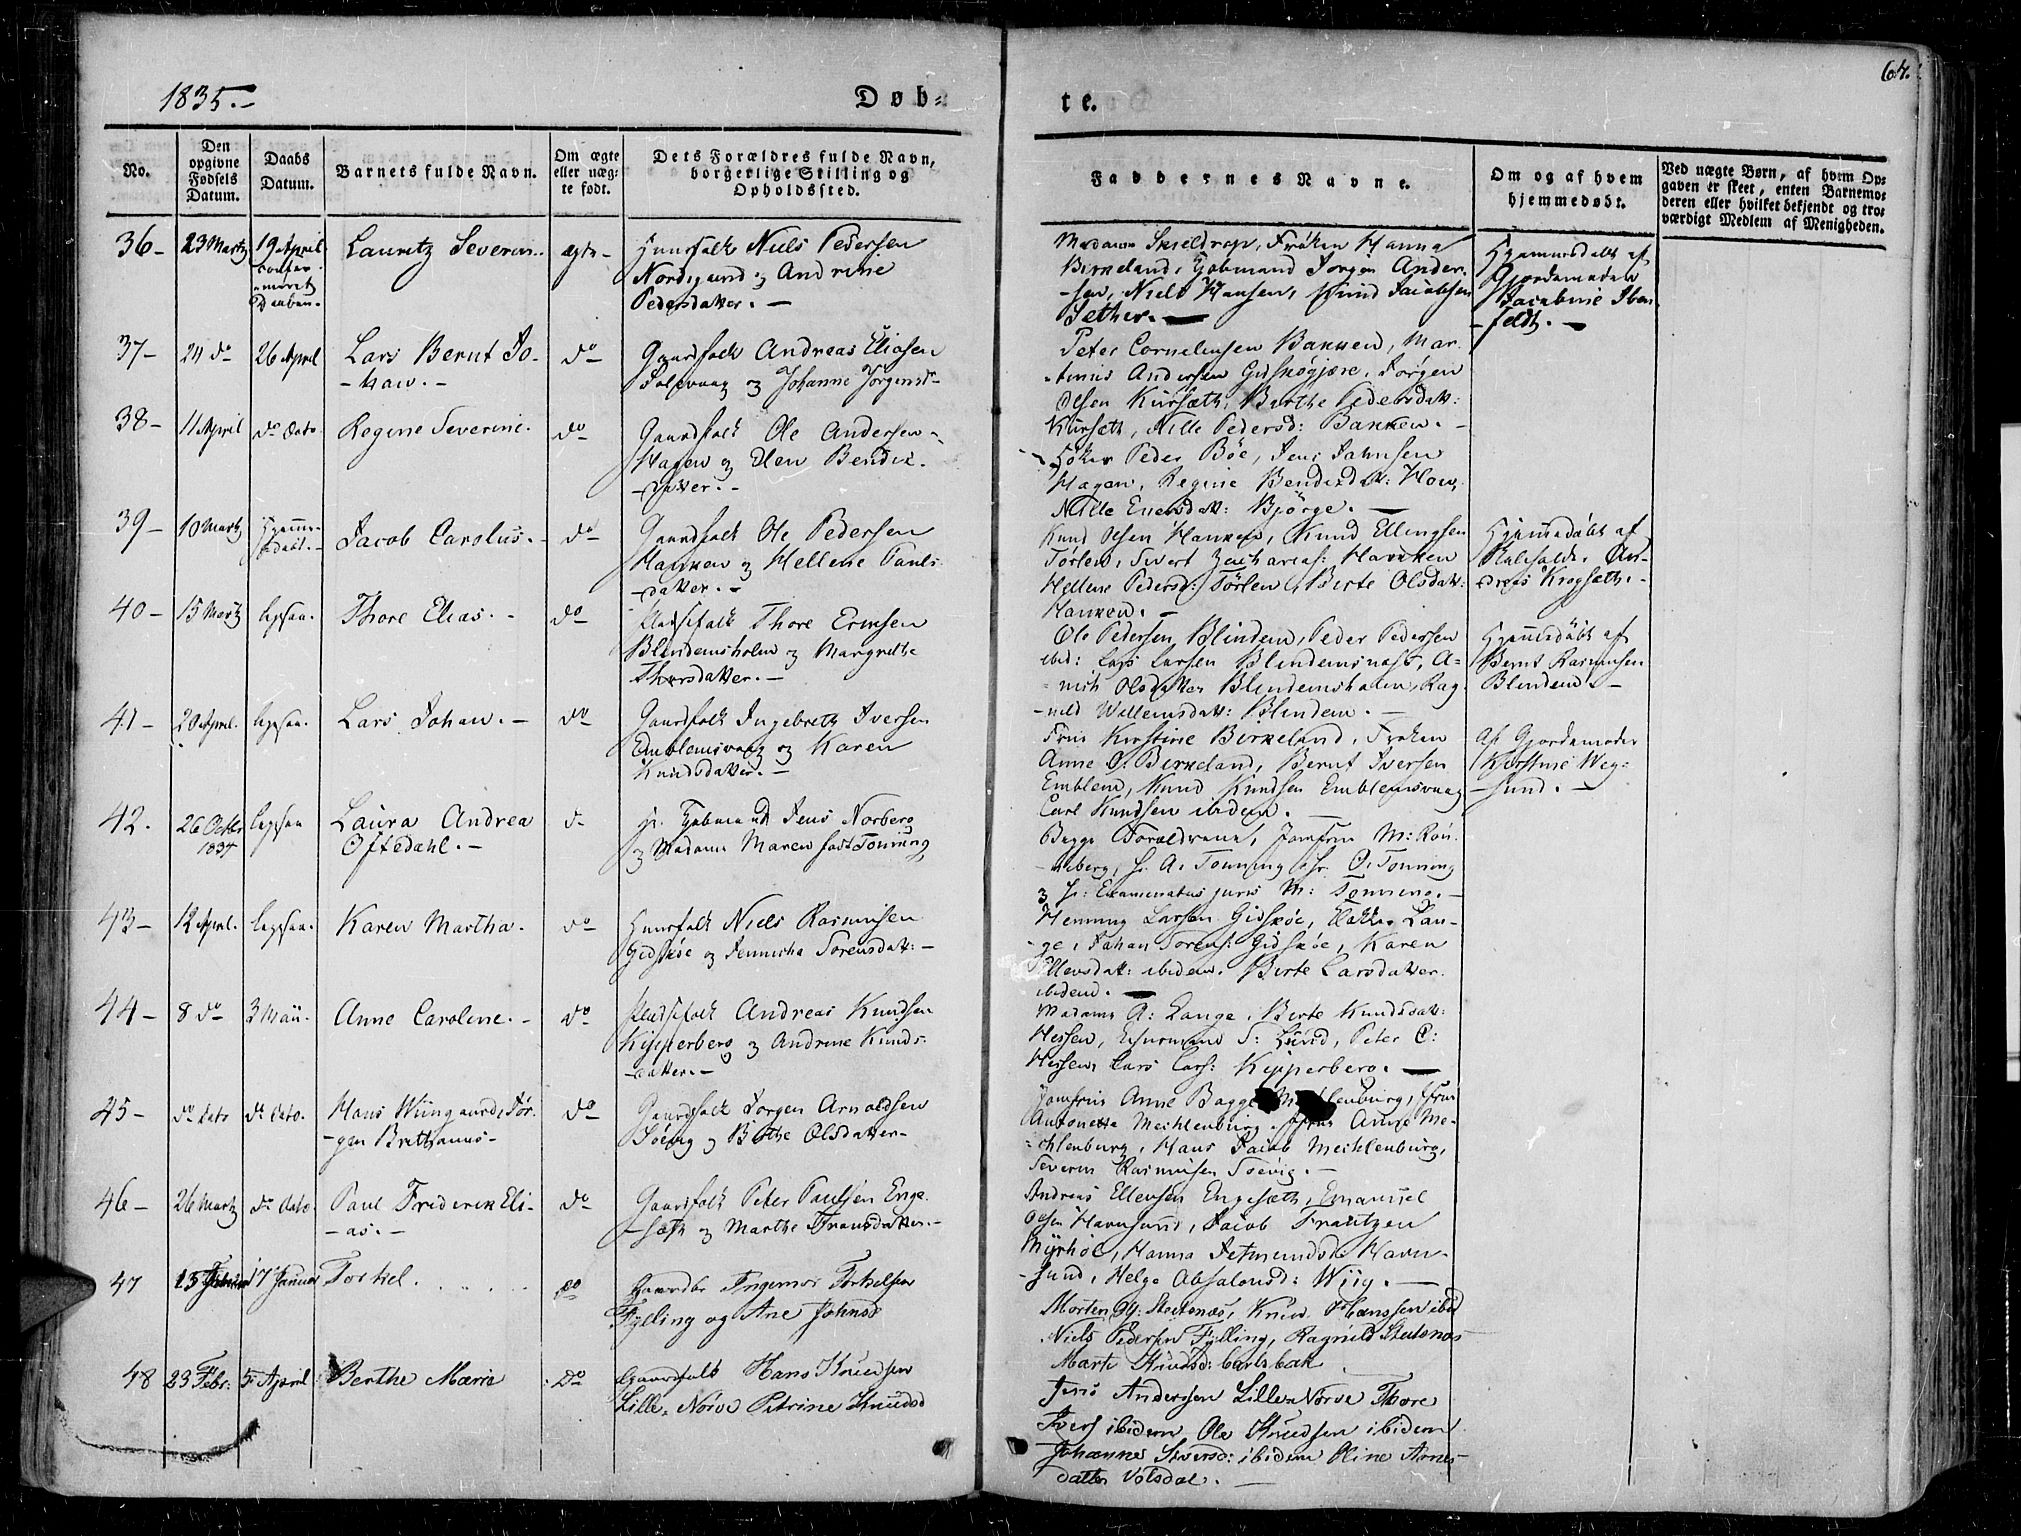 1835.-
Døb=
te.
67.
No.
Den
opgivne
Fødsels
Datum.
Daabs
Datum.
Barnets fulde Navn.
Om ægte
eller uæg-
te født.
Dets Forældres fulde Navn,
borgerlige Stilling og
Opholdssted.
Faddernes Navne.
Om og af hvem
hjemmedøbt.
Ved uægte Børn, af hvem Op-
gaven er skeet, enten Barnemo-
deren eller hvilket bekjendt og tro-
værdigt Medlem af Menigheden.
36-
23 Martz
19 April
Daaben.
Lauretz Severin.
ægte-
Huusfolk Niels Pedersen
Nordigaard og Andrine
Pedersdatter. -
Madame Skieldrop, Frøken Hanna
Birkeland, Kjøbmand Jørgen Ander-
-sen, Niels Hansen, Knud Jacobsen
Sether. -
Hjemmedøbt af
Gjordemoder
Jacobine Iben-
-feldt. -
37-
24 do
26 April
Lars Bernt Jo-
-han. -
do
Gaardfolk Andreas Eliasen
og Johanne Jørgensd-
Peter Cornelinsen Bakken, Mar-
-tinus Andersen Gidskøgjære, Jørgen
Olsen Kursæth, Berthe Pedersdatt:
Kursæth, Nille Pedersd: Bakken. -
38-
11 April
do Dato.
Regine Severine.
do
Gaardfolk Ole Andersen
Hagen og Elen Bendix-
-datter. -
Peder Bøe, Jens Johnsen
Hagen, Regine Bendixdatt: Hou,
Nille Eversdatt: Bjørge. -
39-
10 Martz
Hjemme-
-døbt. -
Jacob Carolus. -
do
Gaardfolk Ole Pedersen
Hanken og Hellene Pauls-
-datter. -
Knud Olsen Hanken, Knud Ellingsen
Tørlen, Sivert Zacharias: Hanken
Hellene Pedersd: Tørlen, Berte Olsdatt:
Hanken. -
Hjemmedøbt af
An-
-dreas Krogsæth. -
40-
15 Martz
ligesaa.
Thore Elias. -
do
Pladsfolk Thore Ericksen
Blindemsholm og Margrethe
Thorsdatter. -
Ole Pedersen Blindem, Peder Pedersen
ibid: Lars Larsen Blindemsnæs, A-
Olsdatter Blindemsholm, Rag-
-nild Willemsdatt: Blindem. -
Hjemmedøbt af
Bernt Rasmusen
Blindem. -
41-
20 April.
ligesaa.
Lars Johan. -
do
Gaardfolk Ingebreth Iversen
Emblemsvaag og Karen
Knudsdatter. -
Frue Kirstine Birkeland, Frøken
Anne O. Birkeland, Bernt Iversen
Emblem, Knud Knudsen Emblemsvaag
Carl Knudsen ibidem. -
Af Gjordemoder
Kirstine Weg-
-sund. -
42.
26 Octbr
1834
ligesaa
Laura Andrea
Oftedahl. -
d-
Hr. Kjøbmand Jens Norberg
og Madame Maren født Tonning
Begge Forældrene, Jomfrue M: Røn-
-neberg, Hr. A: Tonning, Hr. O: Tonning
Hr: Examinatus juris M: Tonning. -
43-
12 April.
ligesaa.
Karen Martha.
do
Huusfolk Niels Rasmusen
Gidskøe og Jennicha Sørensdatt: -
Henning Larsen Gidskøe, Lan-
-ge, Johan Sørens: Gidskøe, Karen
Ellevsdatt: ibidem, Berte Larsdatter
ibidem. -
44-
8 do
3 Maii.
Anne Caroline. -
do
Pladsfolk Andreas Knudsen
Kipperberg og Andrine Knuds-
-datter. -
Madame A: Lange, Berte Knudsdatt:
Hessen, S: Lund, Peter C:
Hessen Lars Lars: Kipperberg. -
45-
do Dato
do Dato.
Hans Wiingaard Jør-
-gen Brithanus-
do
Gaardfolk Jørgen Arnoldsen
Søevig og Bethe Olsdatter-
Jomfrue Anne Bagge Mechlenburg, Frue
Antonette Mechlenburg, Anne Me-
-chlenburg, Hans Jacob Mechlenburg,
Severin Rasmusen Soevig. -
46-
26 Martz
do Dato.
Paul Frederik Eli-
-as. -
do
Gaardfolk Peter Paulsen Enge-
-sæth og Marthe Fransdatter. -
Andreas Ellevsen Engesæth, Emanuel
Olsen Havnsund, Jacob Frantzen
Myrhøl, Hanna Jetmundsd: Havn-
-sund, Helge Absalonsd: Wiig. -
47
15
17 Januar
Torkel.
do
Ingemor Torkelsen
Fylling og Ane Johnsd
Morten Stutsnæs, Knud Hanssen ibid
Niels Pedersen Fylling, Ragnild Stutsnæs
Marte Knudsd: Carlsbak
48
23 Febr:
5 April
Berthe Marie
do
Gaardfolk Hans Knudsen
Lille-Nørve Petrine Knudsd
Jens Anderssen Lille-Nørve Thore
Ivers ibidem Ole Knudsen ibidem
Johanne Siversd: ibidem Oline Arnes-
datter Volsdal. -